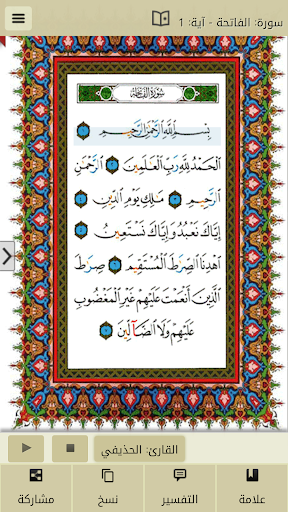 سورة: الفاتحة - آية: 1
سُورَةُ الفَاتِحَةِ
بِسْمِ اللَّهِ الرَّحْمَٰنِ الرَّحِيمِ ١
الْحَمْدُ لِلَّهِ رَبِّ الْعَالَمِينَ ٢ الرَّحْمَٰنِ
الرَّحِيمِ ٣ مَٰلِكِ يَوْمِ الدِّينِ ٤
إِيَّاكَ نَعْبُدُ وَإِيَّاكَ نَسْتَعِينُ ٥
اهْدِنَا الصِّرَٰطَ الْمُسْتَقِيمَ ٦ صِرَٰطَ
الَّذِينَ أَنْعَمْتَ عَلَيْهِمْ غَيْرِ الْمَغْضُوبِ
عَلَيْهِمْ وَلَا الضَّالِّينَ ٧
القارئ: الحذيفي
علامة
التفسير
نسخ
مشاركة